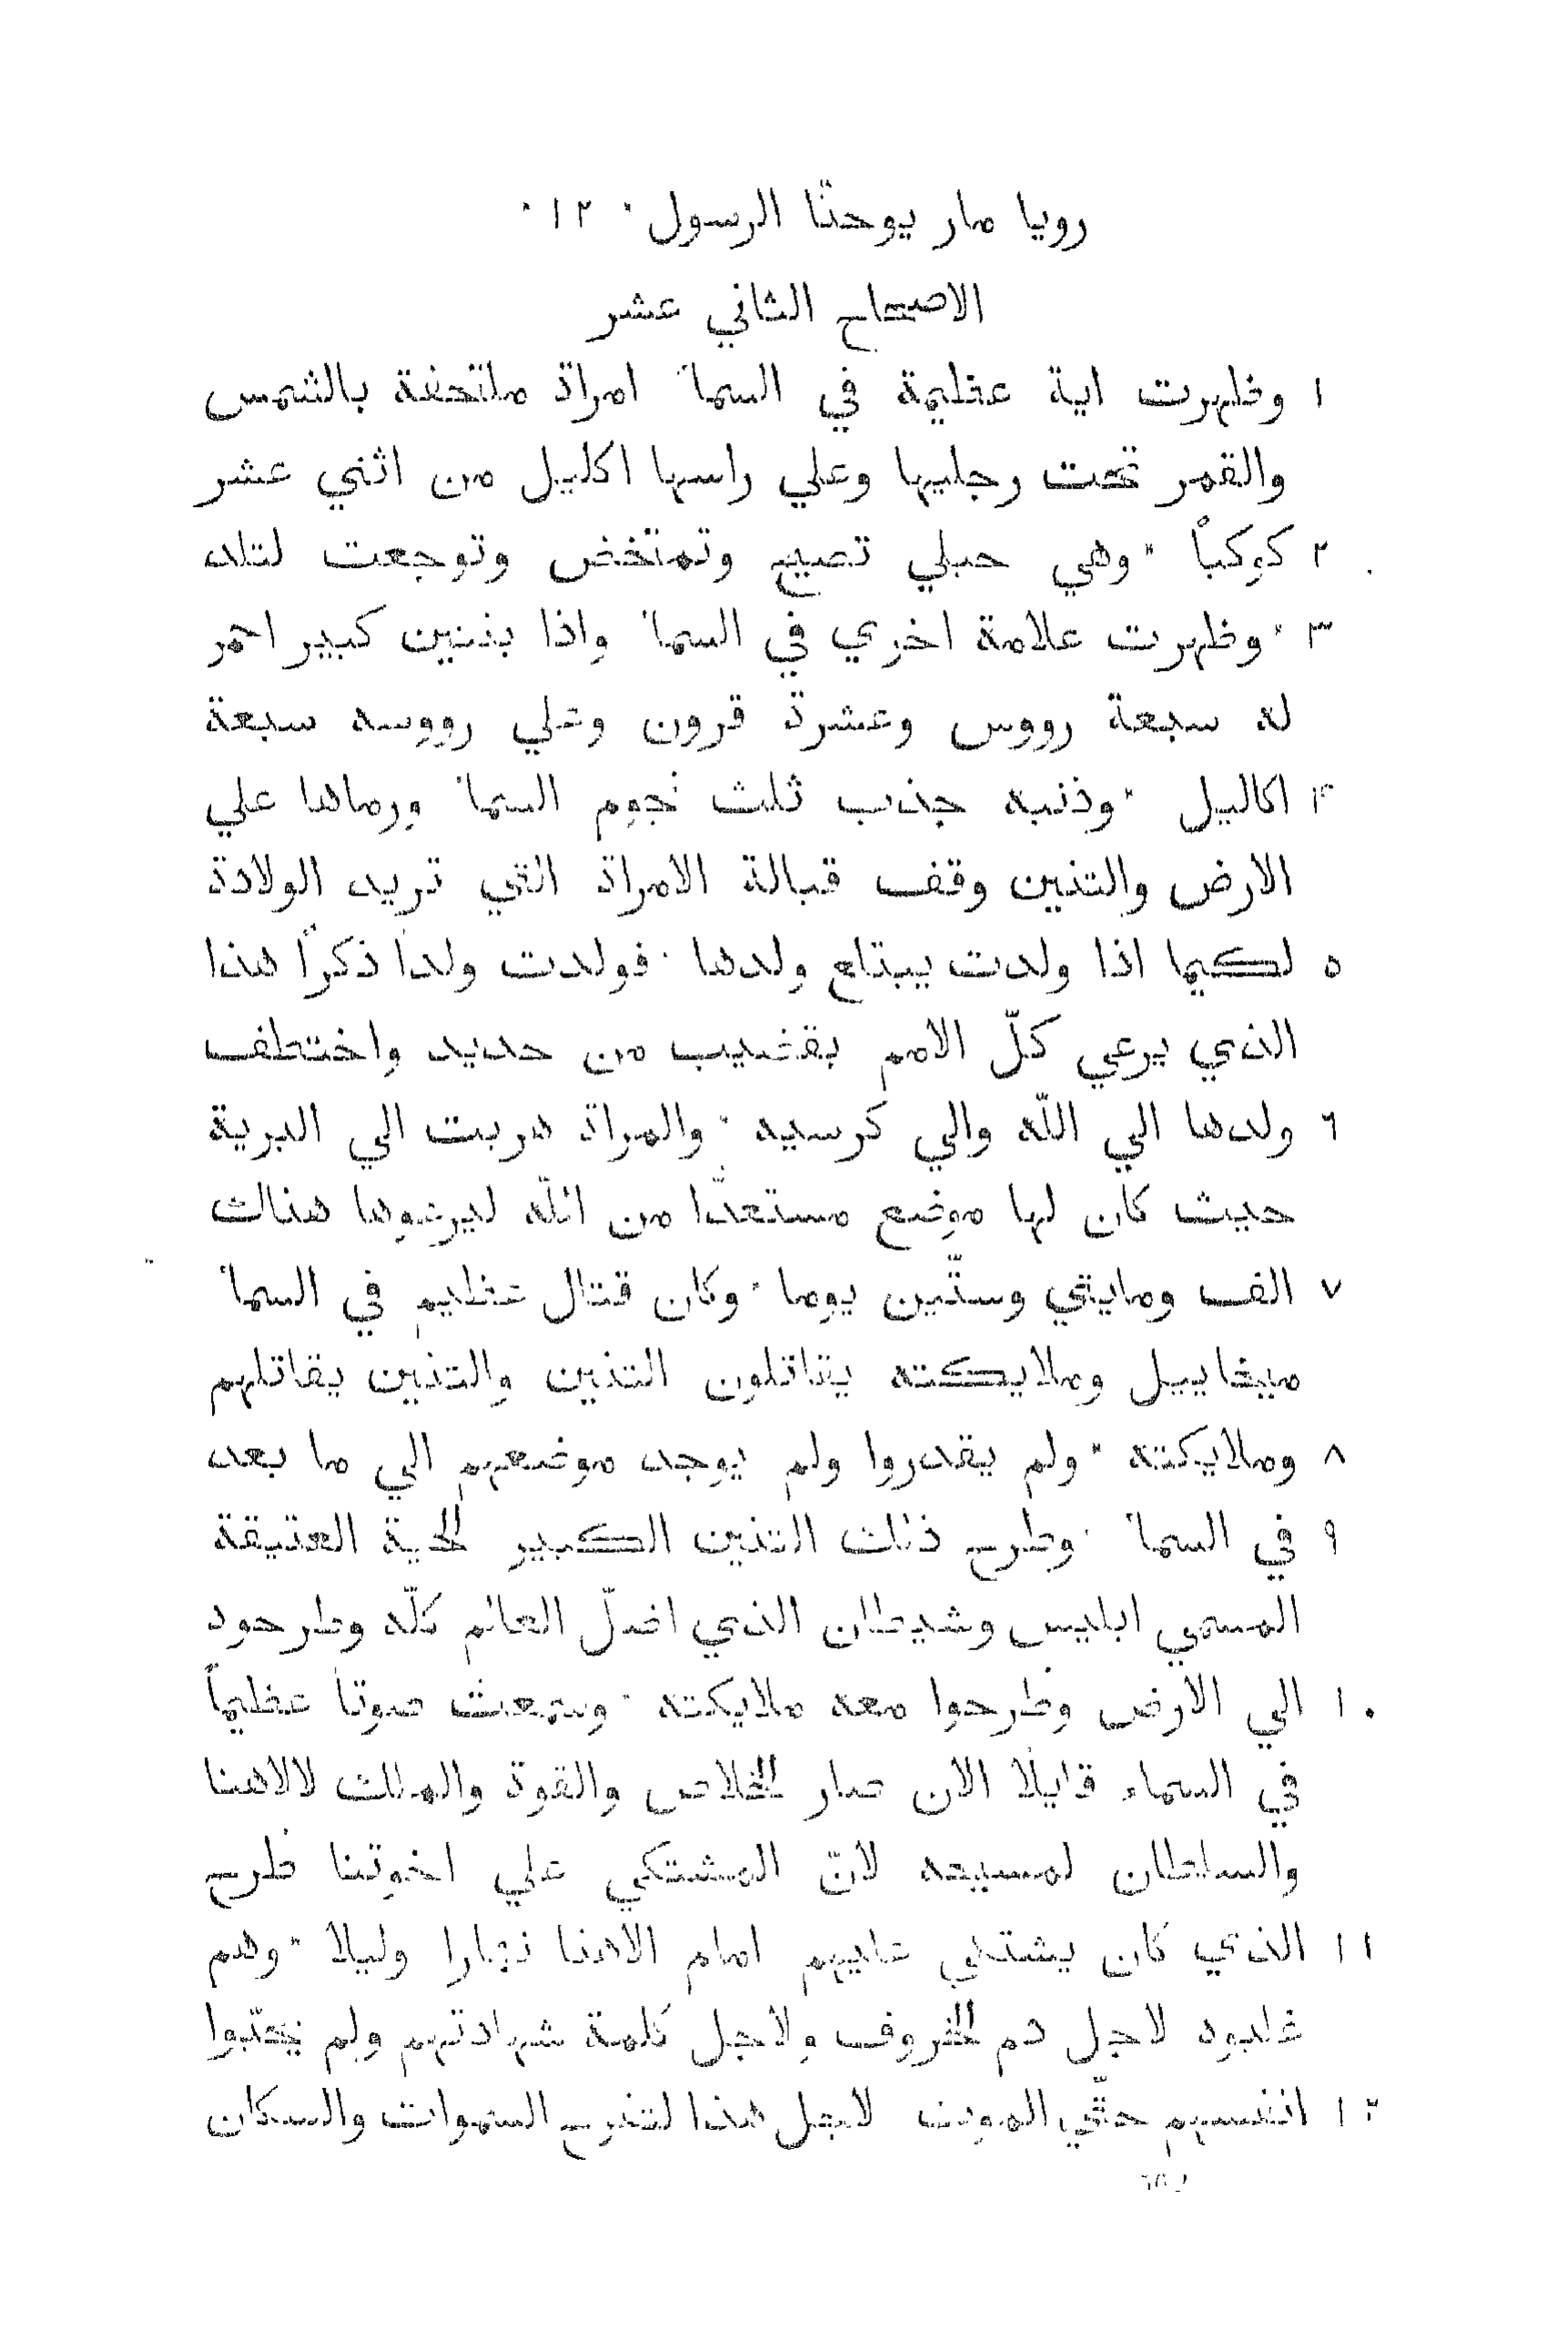 رويا مار يوحنّا الرسول ٠ ١٢ ٠
الاصحاح الثاني عشر
١ وظهرت اية عظيمة في السما امراة ملتحفة بالشمس
والقمر تحت رجليها وعلي راسها اكليل من اثني عشر
٢ كوكباً * وهي حبلي تصيح وتمتخض وتوجعت لتلد
٣ * وظهرت علامة اخري في السما واذا بتنين كبير احمر
له سبعة رووس وعشرة قرون وعلي رووسه سبعة
٤ اكاليل * وذنبه جذب ثلث نجوم السما ورماها علي
الارض والتنين وقف قبالة الامراة التي تريد الولادة
٥ لكيما اذا ولدت يبتلع ولدها * فولدت ولدا ذكراً هذا
الذي يرعي كلّ الامم بقضيب من حديد واختطف
٦ ولدها الي اللّه والي كرسيه * والمراة هربت الي البرية
حيث كان لها موضع مستعدّا من اللّه ليرعوها هناك
٧ الف ومايتي وستّين يوما * وكان قتال عظيم في السما
ميخاييل وملايكته يقاتلون التنين والتنين يقاتلهم
٨ وملايكته * ولم يقدروا ولم يوجد موضعهم الي ما بعد
٩ في السما * وطرح ذلك التنين الكبير الحية العتيقة
المسمي ابليس وشيطان الذي اضلّ العالم كلّه وطرحوه
١٠ الي الارض وطرحوا معه ملايكته * وسمعت صوتا عظيماً
في السماء قايلا الان صار الخلاص والقوة والملك لالاهنا
والسلطان لمسيحه لانّ المشتكي علي اخوتنا طرح
١١ الذي كان يشتكي عليهم امام الاهنا نهارا وليلا * وهم
غلبوه لاجل دم الخروف ولاجل كلمة شهادتهم ولم يحبّوا
١٢ انفسهم حتّي الموت لاجل هذا لتفرح السموات والسكان